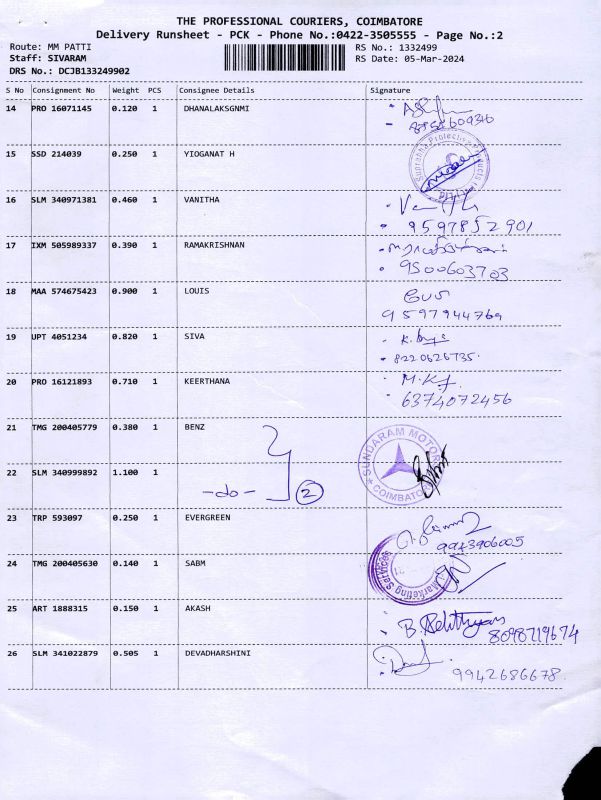 THE PROFESSIONAL COURIERS, COIMBATORE
Delivery Runsheet - PCK - Phone No.:0422-3505555 - Page No.:2
Route: MM PATTI RS No.: 1332499
Staff: SIVARAM RS Date: 05-Mar-2024
DRS No.: DCJB133249902
S No Consignment No Weight PCS Consignee Details Signature
14 PRO 16071145 0.120 1 DHANALAKSGNMI
15 SSD 214039 0.250 1 YIOGANAT H
16 SLM 340971381 0.460 1 VANITHA
9597852901
17 IXM 505989337 0.390 1 RAMAKRISHNAN
9500603703
18 MAA 574675423 0.900 1 LOUIS
9597944769
19 UPT 4051234 0.820 1 SIVA
8220626735
20 PRO 16121893 0.710 1 KEERTHANA
6374072456
21 TMG 200405779 0.380 1 BENZ
SUNDARAM MOTORS
COIMBATORE
22 SLM 340999892 1.100 1
-do- 2
23 TRP 593097 0.250 1 EVERGREEN
9943906005
24 TMG 200405630 0.140 1 SABM
Marketing Services
25 ART 1888315 0.150 1 AKASH
8098719674
26 SLM 341022879 0.505 1 DEVADHARSHINI
9942686678